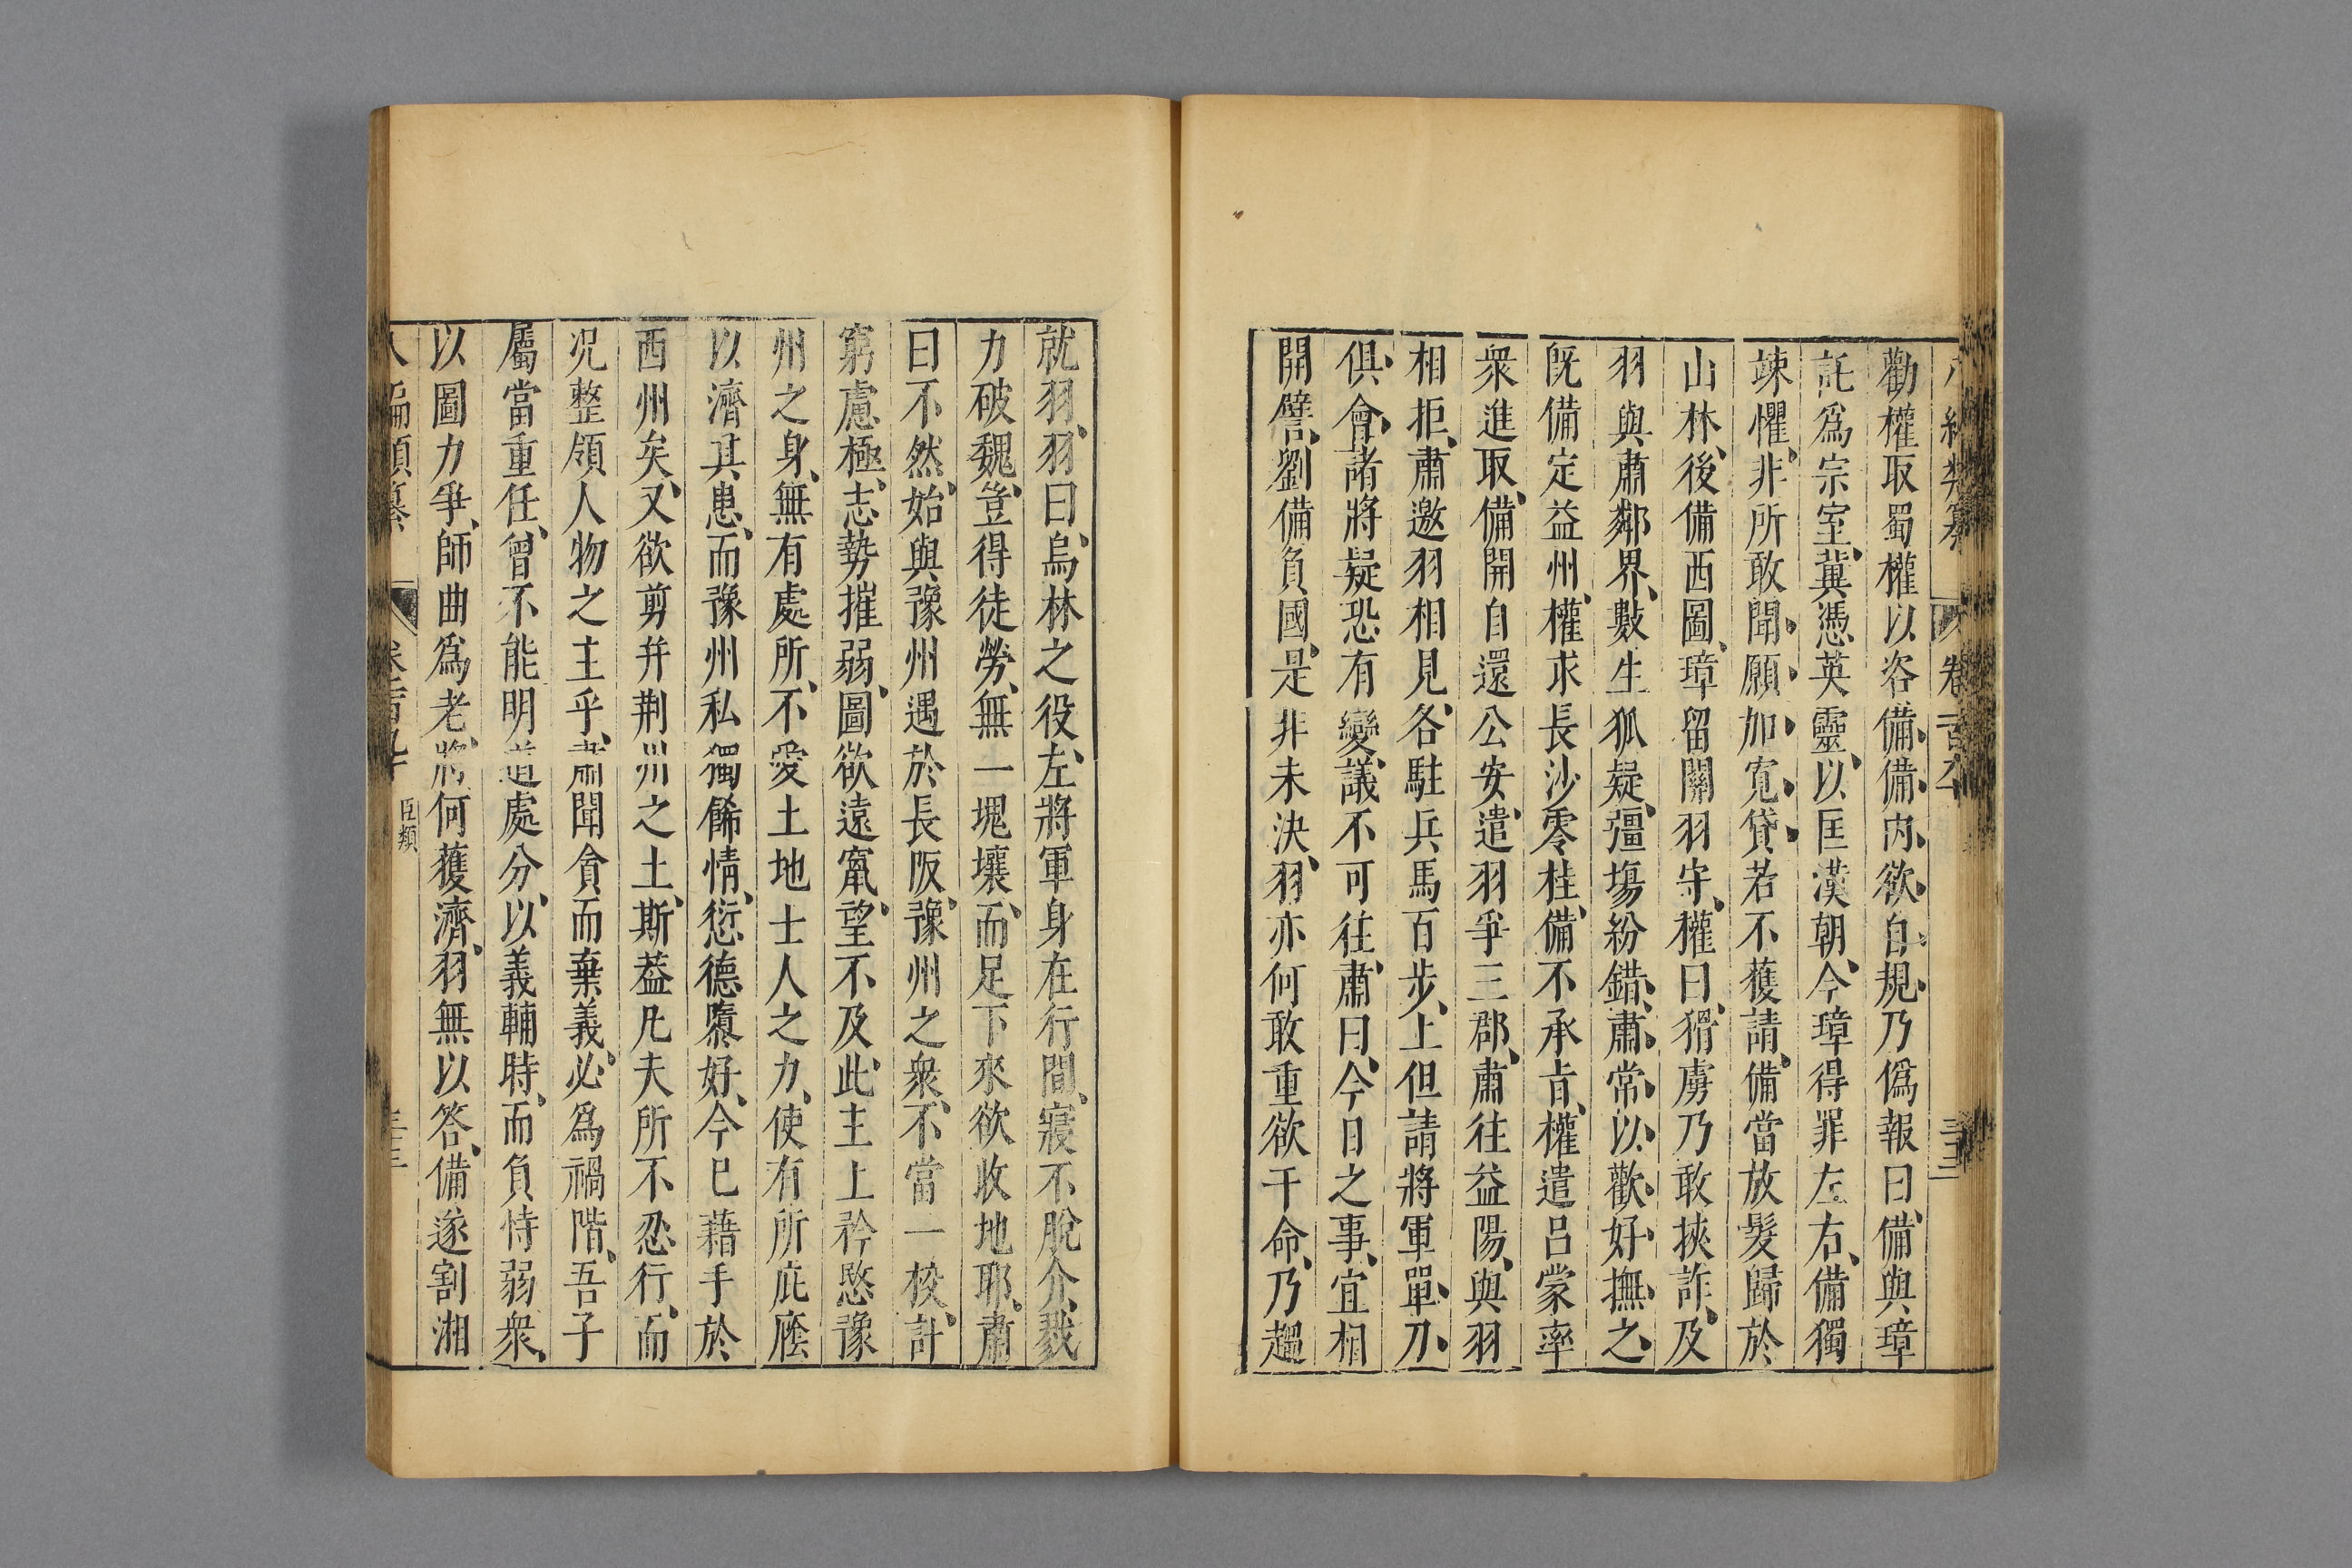 勸權取蜀權以咨備備内欲自規乃僞報曰備與璋
託爲宗室冀憑英靈以匡漢朝今璋得罪左右備獨
竦懼非所敢聞願加寛貸若不獲請備當放髮歸於
山林後備西圖璋留關羽守權曰猾虜乃敢挾詐及
羽與肅鄰界數生狐疑彊場紛錯肅常以歡好撫之
旣備定益州權求長沙零桂備不承㫖權遣吕蒙率
衆進取備開自還公安遣羽爭三郡肅往益陽與羽
相拒肅邀羽相見各駐兵馬百步上但請將軍單刀
俱會諸將疑恐有變議不可往肅曰今日之事宜相
開譬劉備負國是非未決羽亦何敢重欲干命乃趨
就羽羽曰烏林之役左將軍身在行間寢不脫介戮
力破魏豈得徒勞無一塊壤而足下來欲收地耶肅
曰不然始與豫州遇於長阪豫州之衆不當一校計
窮慮極志勢摧弱圖欲遠竄望不及此主上矜愍豫
州之身無有處所不愛土地士人之力使有所庇廕
以濟其患而豫州私獨餙情愆德隳好今巳藉手於
西州矣又欲剪并荆州之土斯葢凡夫所不忍行而
况整領人物之主乎肅聞貪而棄義必爲禍階吾子
屬當重任曾不能明道處分以義輔時而負恃弱衆
以圖力爭師曲爲老將何獲濟羽無以答備遂割湘
編類纂
臣類